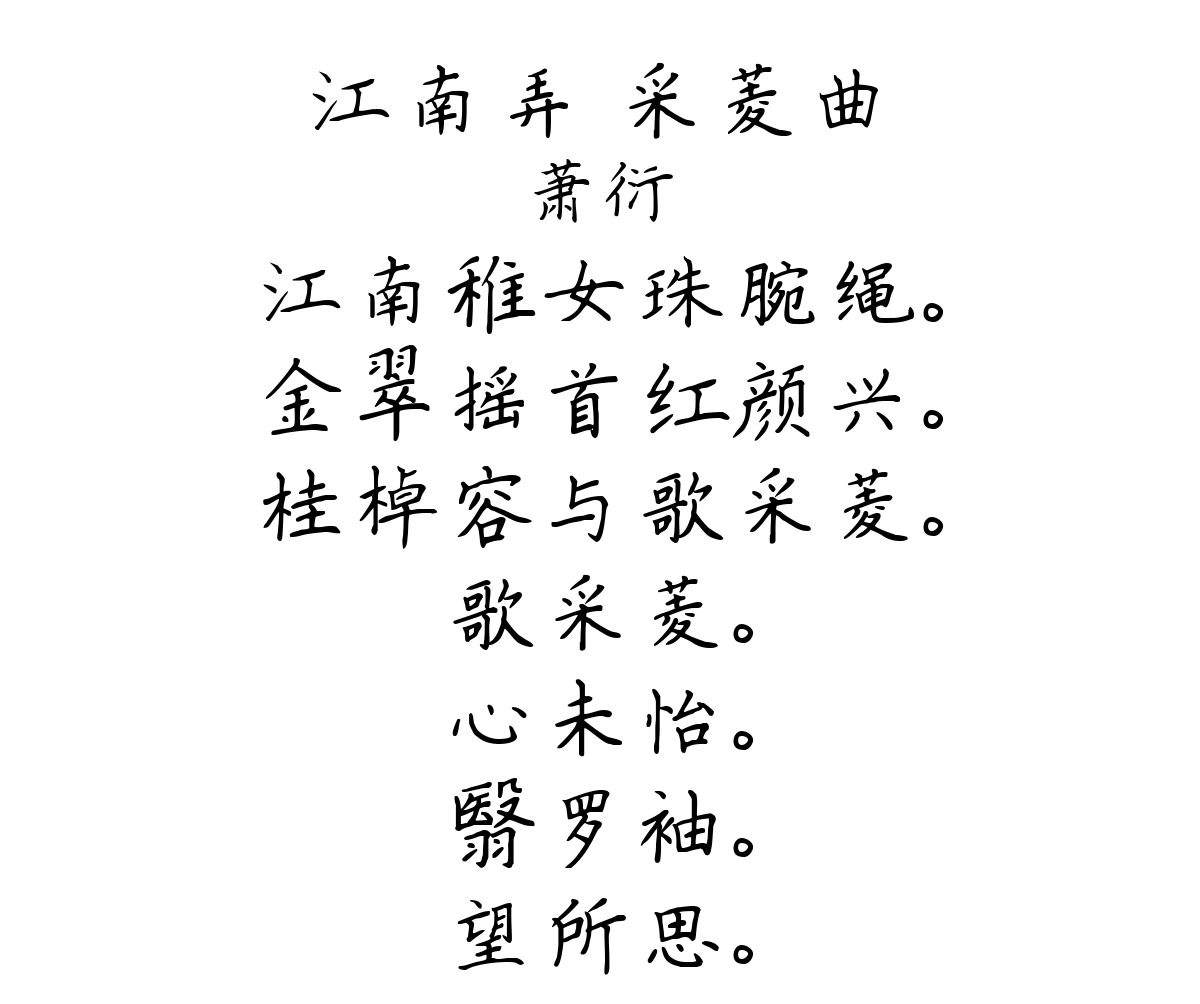 江南弄 采菱曲
萧衍
江南稚女珠腕绳。
金翠摇首红颜兴。
桂棹容与歌采菱。
歌采菱。
心未怡。
翳罗袖。
望所思。